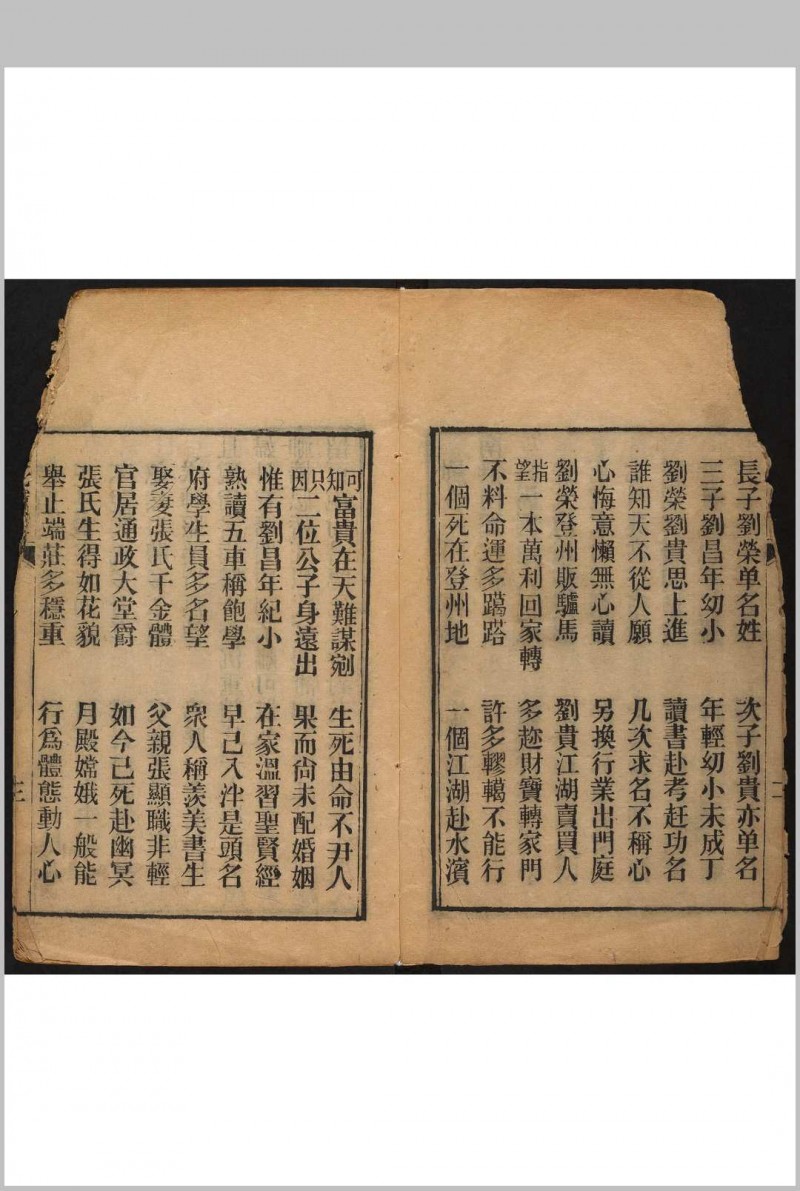 長子劉榮单名姓　次子劉貴亦单名
三子劉昌年幼小　年輕幼小未成丁
劉榮劉貴思上進　讀書赴考赶功名
誰知天不從人願　几次求名不稱心
心悔意懶無心讀　另換行業出門庭
劉榮登州販驢馬　劉貴江湖賣買人
指望一本萬利回家轉　多趂財寶轉家門
不料命運多蹋踣　許多轇轕不能行
一個死在登州地　一個江湖赴水濱
二
可知富貴在天難謀剜　生死由命不尹人
只因二位公子身遠出　果而尙未配婚姻
惟有劉昌年紀小　在家溫習聖賢經
熟讀五車稱飽學　早己入泮是頭名
府學生員多名望　衆人稱羡美書生
娶妻張氏千金體　父親張顯職非輕
官居通政大堂爵　如今己死赴幽冥
張氏生得如花貌　月殿嫦娥一般能
舉止端莊多穩重　行爲體態動人心
三